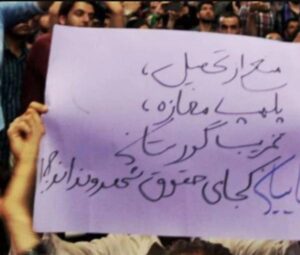 منع از تحصیل،
پلمپ مغازه،
تخریب گورستان
کجای حقوق شهروند اند؟!